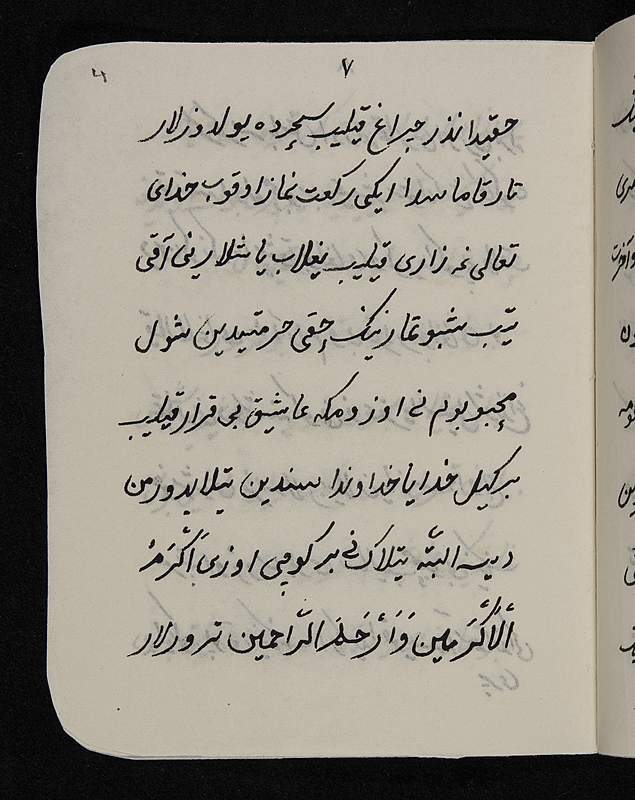 ۷
حقیداندر چراغ قیلیب سجده یولدوزلار
نار قاماسدا ایکی رکعت نماز اوقوب خدای
تعالی غه زاری قیلیب یغلاب یاشلارینی آقی
تیب شبو نمازنینک حقی حرمتیدین شول
محبوبوم نی اوزومکه عاشیق بی قرار قیلیب
برکیل خدایا خداوندا سندین یتلایدورمن
دیسه البتّه یتلاک نی برکوچی اوزی اَکْرَمْ
الْاَکْرَمین وَ اَرْحَمَ الرّاحمین تورورلار